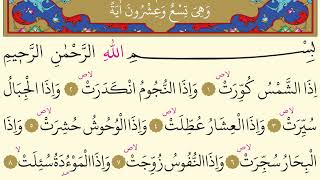 وَهِىَ تِسْعٌ وَعِشْرُونَ اٰيَةً
بِسْـــمِ اللّٰهِ الرَّحْمٰنِ الرَّحٖيمِ
اِذَا الشَّمْسُ كُوِّرَتْۙ ﴿١﴾ وَاِذَا النُّجُومُ انْكَدَرَتْۙ ﴿٢﴾ وَاِذَا الْجِبَالُ
سُيِّرَتْۙ ﴿٣﴾ وَاِذَا الْعِشَارُ عُطِّلَتْۙ ﴿٤﴾ وَاِذَا الْوُحُوشُ حُشِرَتْۙ ﴿٥﴾ وَاِذَا
الْبِحَارُ سُجِّرَتْۙ ﴿٦﴾ وَاِذَا النُّفُوسُ زُوِّجَتْۙ ﴿٧﴾ وَاِذَا الْمَوْءُ۫دَةُ سُئِلَتْۙ ﴿٨﴾